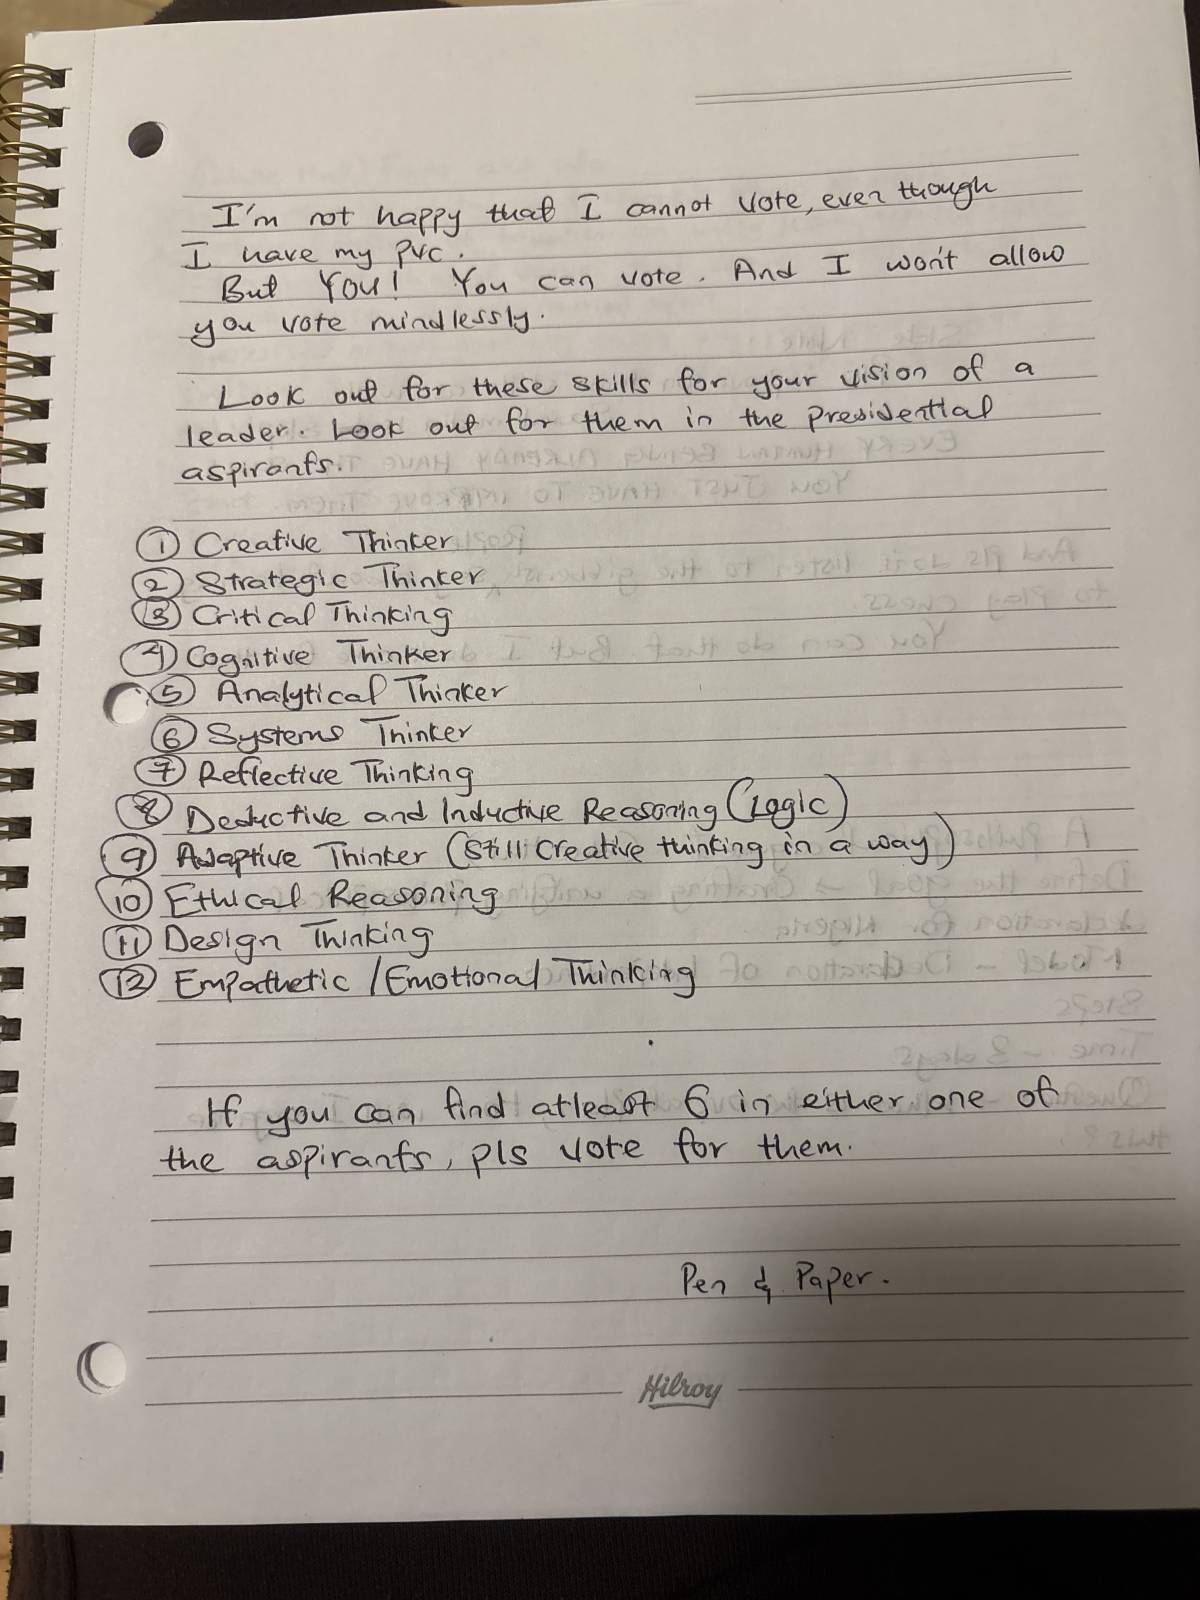 I'm not happy that I cannot vote, even though
I have my PVC.
But YOU! You can vote. And I won't allow
you vote mindlessly.
Look out for these skills for your vision of a
leader. Look out for them in the presidential
aspirants.
1 Creative Thinker
2 Strategic Thinker
3 Critical Thinking
4 Cognitive Thinker
5 Analytical Thinker
6 Systems Thinker
7 Reflective Thinking
8 Deductive and Inductive Reasoning (Logic)
9 Adaptive Thinker (Still Creative thinking in a way)
10 Ethical Reasoning
11 Design Thinking
12 Empathetic / Emotional Thinking
If you can find atleast 6 in either one of
the aspirants, pls vote for them.
Pen & Paper.
Hilroy